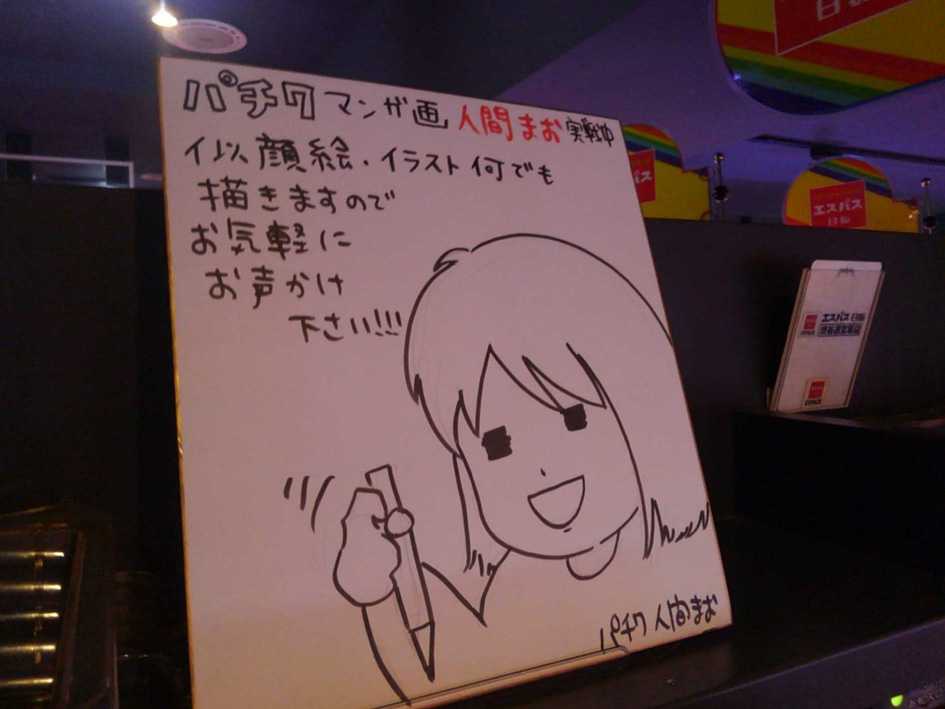 パチワマンガ画人間まお実戦中
似顔絵・イラスト何でも
描きますので
お気軽に
お声かけ
下さい!!!
パチワ人間まお
エスパス
日拓
エスパス日拓